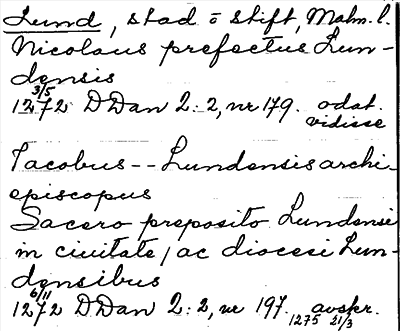 Lund, stad o stift, Malm. l.
Nicolaus prefectus Lun-
densis
3/5
1272 DDan 2:2, nr 179. odat.
vidisse
Jacobus -- Lundensis archi-
episcopus
Sacero preposito Lundensi
in ciuitate / ac diocesi Lun-
densibus
6/11
1272 DDan 2:2, nr 197. avskr.
1275 21/3